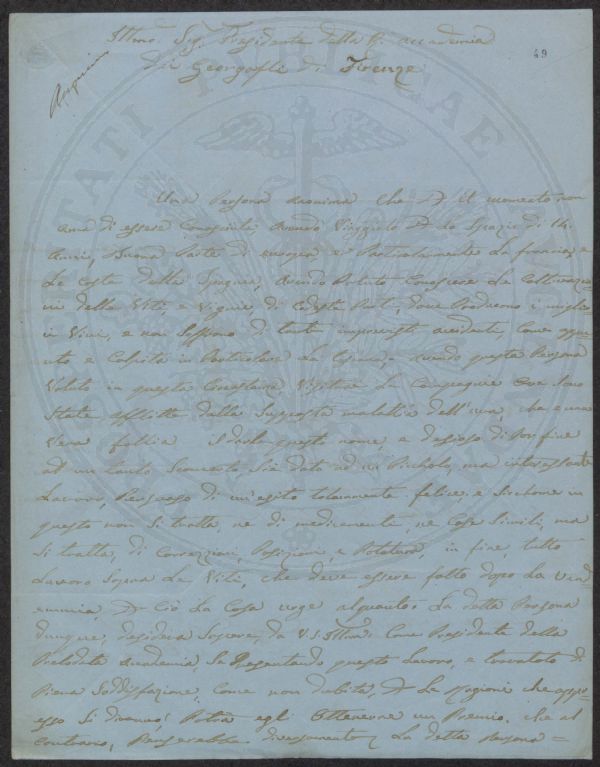 Illmo Sig. Presidente della R. Accademia
dei Georgofili di Firenze
49
Una Persona anonima che P. il momento non
ama di essere Conosciuta avendo Viaggiato P. lo Spazio di 14.
Anni, Buona Parte di Europa e Particolarmente La francia e
Le Coste della Spagna, avendo Potuto Conoscere La Coltivazio-
ni delle Vite, e Vigne, di Codeste Parti, dove Producono i miglio-
ri Vini, e non Soffrono di tanti imprevisti accidenti, Come
e Colpita in Particolare La Toscana, avendo questa Persona
Voluto in questa Visitare Le Campagne Ove Sono
State afflitte dalla Supposta malattia dell'uva, che è una
Vera follia il darle questo nome, e desioso di Por fine
ad un tanto Si è dato ad un Picholo, ma interessante
Lavoro, Persuaso di un'esito totalmente felice; e Sicchome in
questo non Si tratta, ne di medicamenti, ne Cose Simili, ma
Si tratta, di Correzzioni, Posizioni, e Potature, in fine, tutto
Lavoro Sopra Le Viti, che deve essere fatto dopo La Vend
emmia, P. Ciò La Cosa urge alquanto. La detta Persona
dunque, desidera Sapere, da V.S. Illma Come Presidente della
Prelodata Accademia, Se Presentando questo Lavoro, e trovatolo di
Piena Soddisfazione, Come non dubita, P. Le Ragioni che appr-
esso Si diranno, Potrà egli Ottenerne un Premio. che al
contrario, Penserebbe diversamente, La detta Persona =